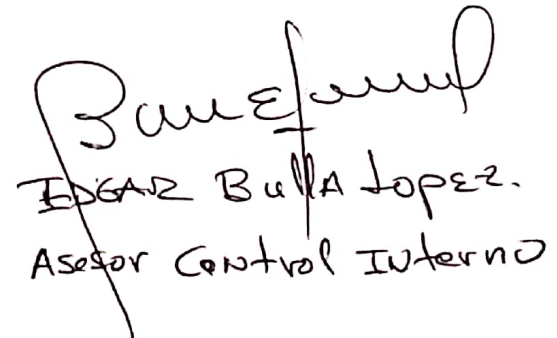 EDGAR BullA Lopez.
Asesor Control Interno